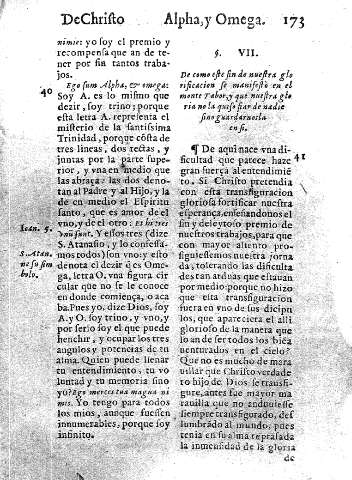 De Christo Alpha, y Omega. 173
nimis: yo soy el premio y
recompensa que an de te-
ner por sin tantos traba-
jos.
40 Ego sum Alpha, & omega:
Soy A. es lo mismo que
dezir, soy trino; porque
esta letra A. representa el
misterio de la santissima
Trinidad, porque cõsta de
tres lineas, dos rectas, y
juntas por la parte supe-
rior, y vna en medio que
las abraça: las dos deno-
tan al Padre y al Hijo, y la
de en medio el Espiritu
santo, que es amor de el
vno, y de el otro: Es hi tres
Ioan. 5. vnũ sunt. Y estos tres (dize
S. Atan. S. Atanasio, y lo confessa-
in su sim mos todos) son vno: y esto
bolo. denota el dezir q̃ es Ome-
ga, letra O, vna figura cir
cular que no se le conoce
en donde comiença, o aca
ba. Pues yo, dize Dios, soy
A. y O. soy trino, y vno, y
por serlo soy el que puede
henchir, y ocupar los tres
angulos y potencias de tu
alma. Quien puede llenar
tu entendimiento, tu vo
luntad y tu memoria sino
yo? Ego merces tua magna ni
mis. Yo tengo para todos
los mios, aunque fuessen
innumerables, porque soy
infinito.
§. VII.
De como este fin de nuestra glo
rificacion se manifestò en el
monte Tabor, y que nuestra glo
ria no la quiso fiar de nadie
sino guardarnosla
en si.
¶ De aqui nace vna di- 41
ficultad que parece haze
gran fuerça al entendimiẽ
to. Si Christo pretendia
con esta transfiguracion
gloriosa fortificar nuestra
esperança, enseñandonos el
fin y deleytoso premio de
nuestros trabajos, para que
con mayor aliento pro-
siguiessemos nuestra jorna
da, tolerando las dificulta
des tan arduas que estauan
por medio: porque no hizo
que esta transfiguracion
fuera en vno de sus dicipu
los, que apareciera el alli
glorioso de la manera que
lo an de ser todos los biẽa
uenturados en el cielo?
Que no es mucho de mara
uillar que Christo verdade
ro hijo de Dios se transfi-
gure, antes fue mayor ma
rauilla que no anduuiesse
siempre transfigurado, des
lumbrado al mundo, pues
tenia en su alma represada
la inmensidad de la gloria
de